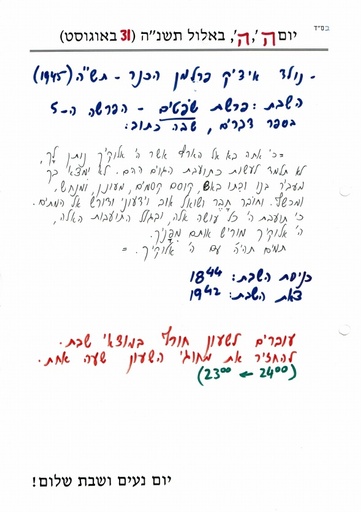 בס״ד
יום ה׳, ה׳, באלול תשנ״ה (31 באוגוסט)
- נולד איצ׳יק פרלמן הכנר - תש״ה (1945)
השבת: פרשת שפטים - הפרשה ה-5
בספר דברים, שבה כתוב:
"כי אתה בא אל הארץ אשר ה׳ אלוקיך נותן לך,
לא תלמד לעשות כתועבת הגוים ההם. לא ימצא בך
מעביר בנו ובתו באש, קוסם קסמים, מעונן, ומנחש,
ומכשף. וחובר חבר ושואל אוב וידעוני ודורש אל המתים.
כי תועבת ה׳ כל עושה אלה, ובגלל התועבות האלה,
ה׳ אלוקיך מוריש אותם מפניך.
תמים תהיה עם ה׳ אלוקיך. "
כניסת השבת: 18⁴⁴
צאת השבת: 19⁴²
עוברים לשעון חורף במוצאי שבת.
להחזיר את מחוגי השעון שעה אחת.
(23⁰⁰ ← 24⁰⁰)
יום נעים ושבת שלום!